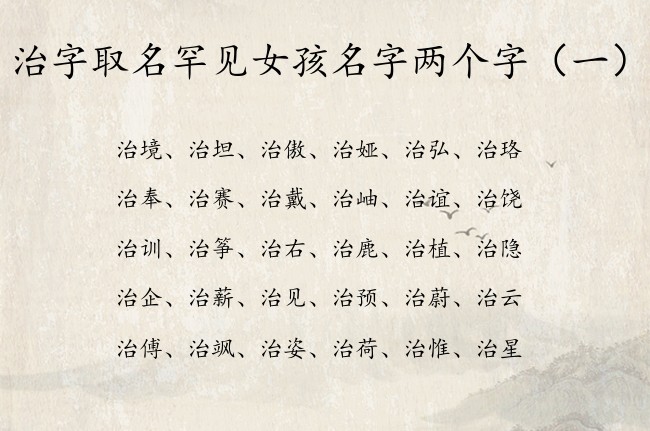 治字取名罕见女孩名字两个字（一）
治境、治坦、治傲、治娅、治弘、治珞
治奉、治赛、治戴、治岫、治谊、治饶
治训、治筝、治右、治鹿、治植、治隐
治企、治薪、治见、治预、治蔚、治云
治傅、治飒、治姿、治荷、治惟、治星